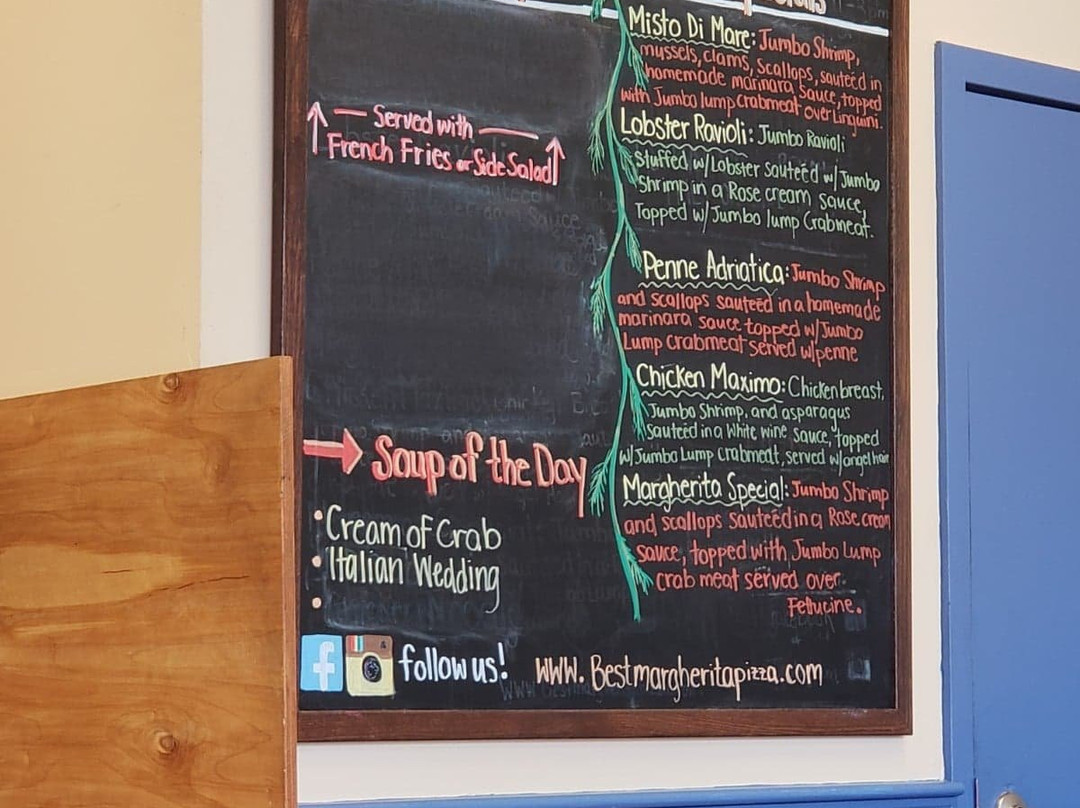 Served with
French Fries or Side Salad
Soup of the Day
Cream of Crab
Italian Wedding
f follow us!
Misto Di Mare: Jumbo Shrimp,
mussels, clams, scallops, sauteéd in
homemade marinara sauce, topped
with Jumbo lump crabmeat over Linguini.
Lobster Ravioli: Jumbo Ravioli
Stuffed w/Lobster sauteéd w/Jumbo
Shrimp in a Rose cream sauce,
Topped w/Jumbo lump Crabmeat.
Penne Adriatica: Jumbo Shrimp
and scallops sauteéd in a homemade
marinara sauce topped w/Jumbo
Lump crabmeat served w/penne
Chicken Maximo: Chicken breast,
Jumbo Shrimp, and asparagus
Sauteéd in a White wine sauce, topped
w/Jumbo Lump Crabmeat, served w/angel hair
Margherita Special: Jumbo Shrimp
and scallops Sauteéd in a Rose cream
sauce, topped with Jumbo Lump
crab meat served over
Fettucine.
www.Bestmargheritapizza.com